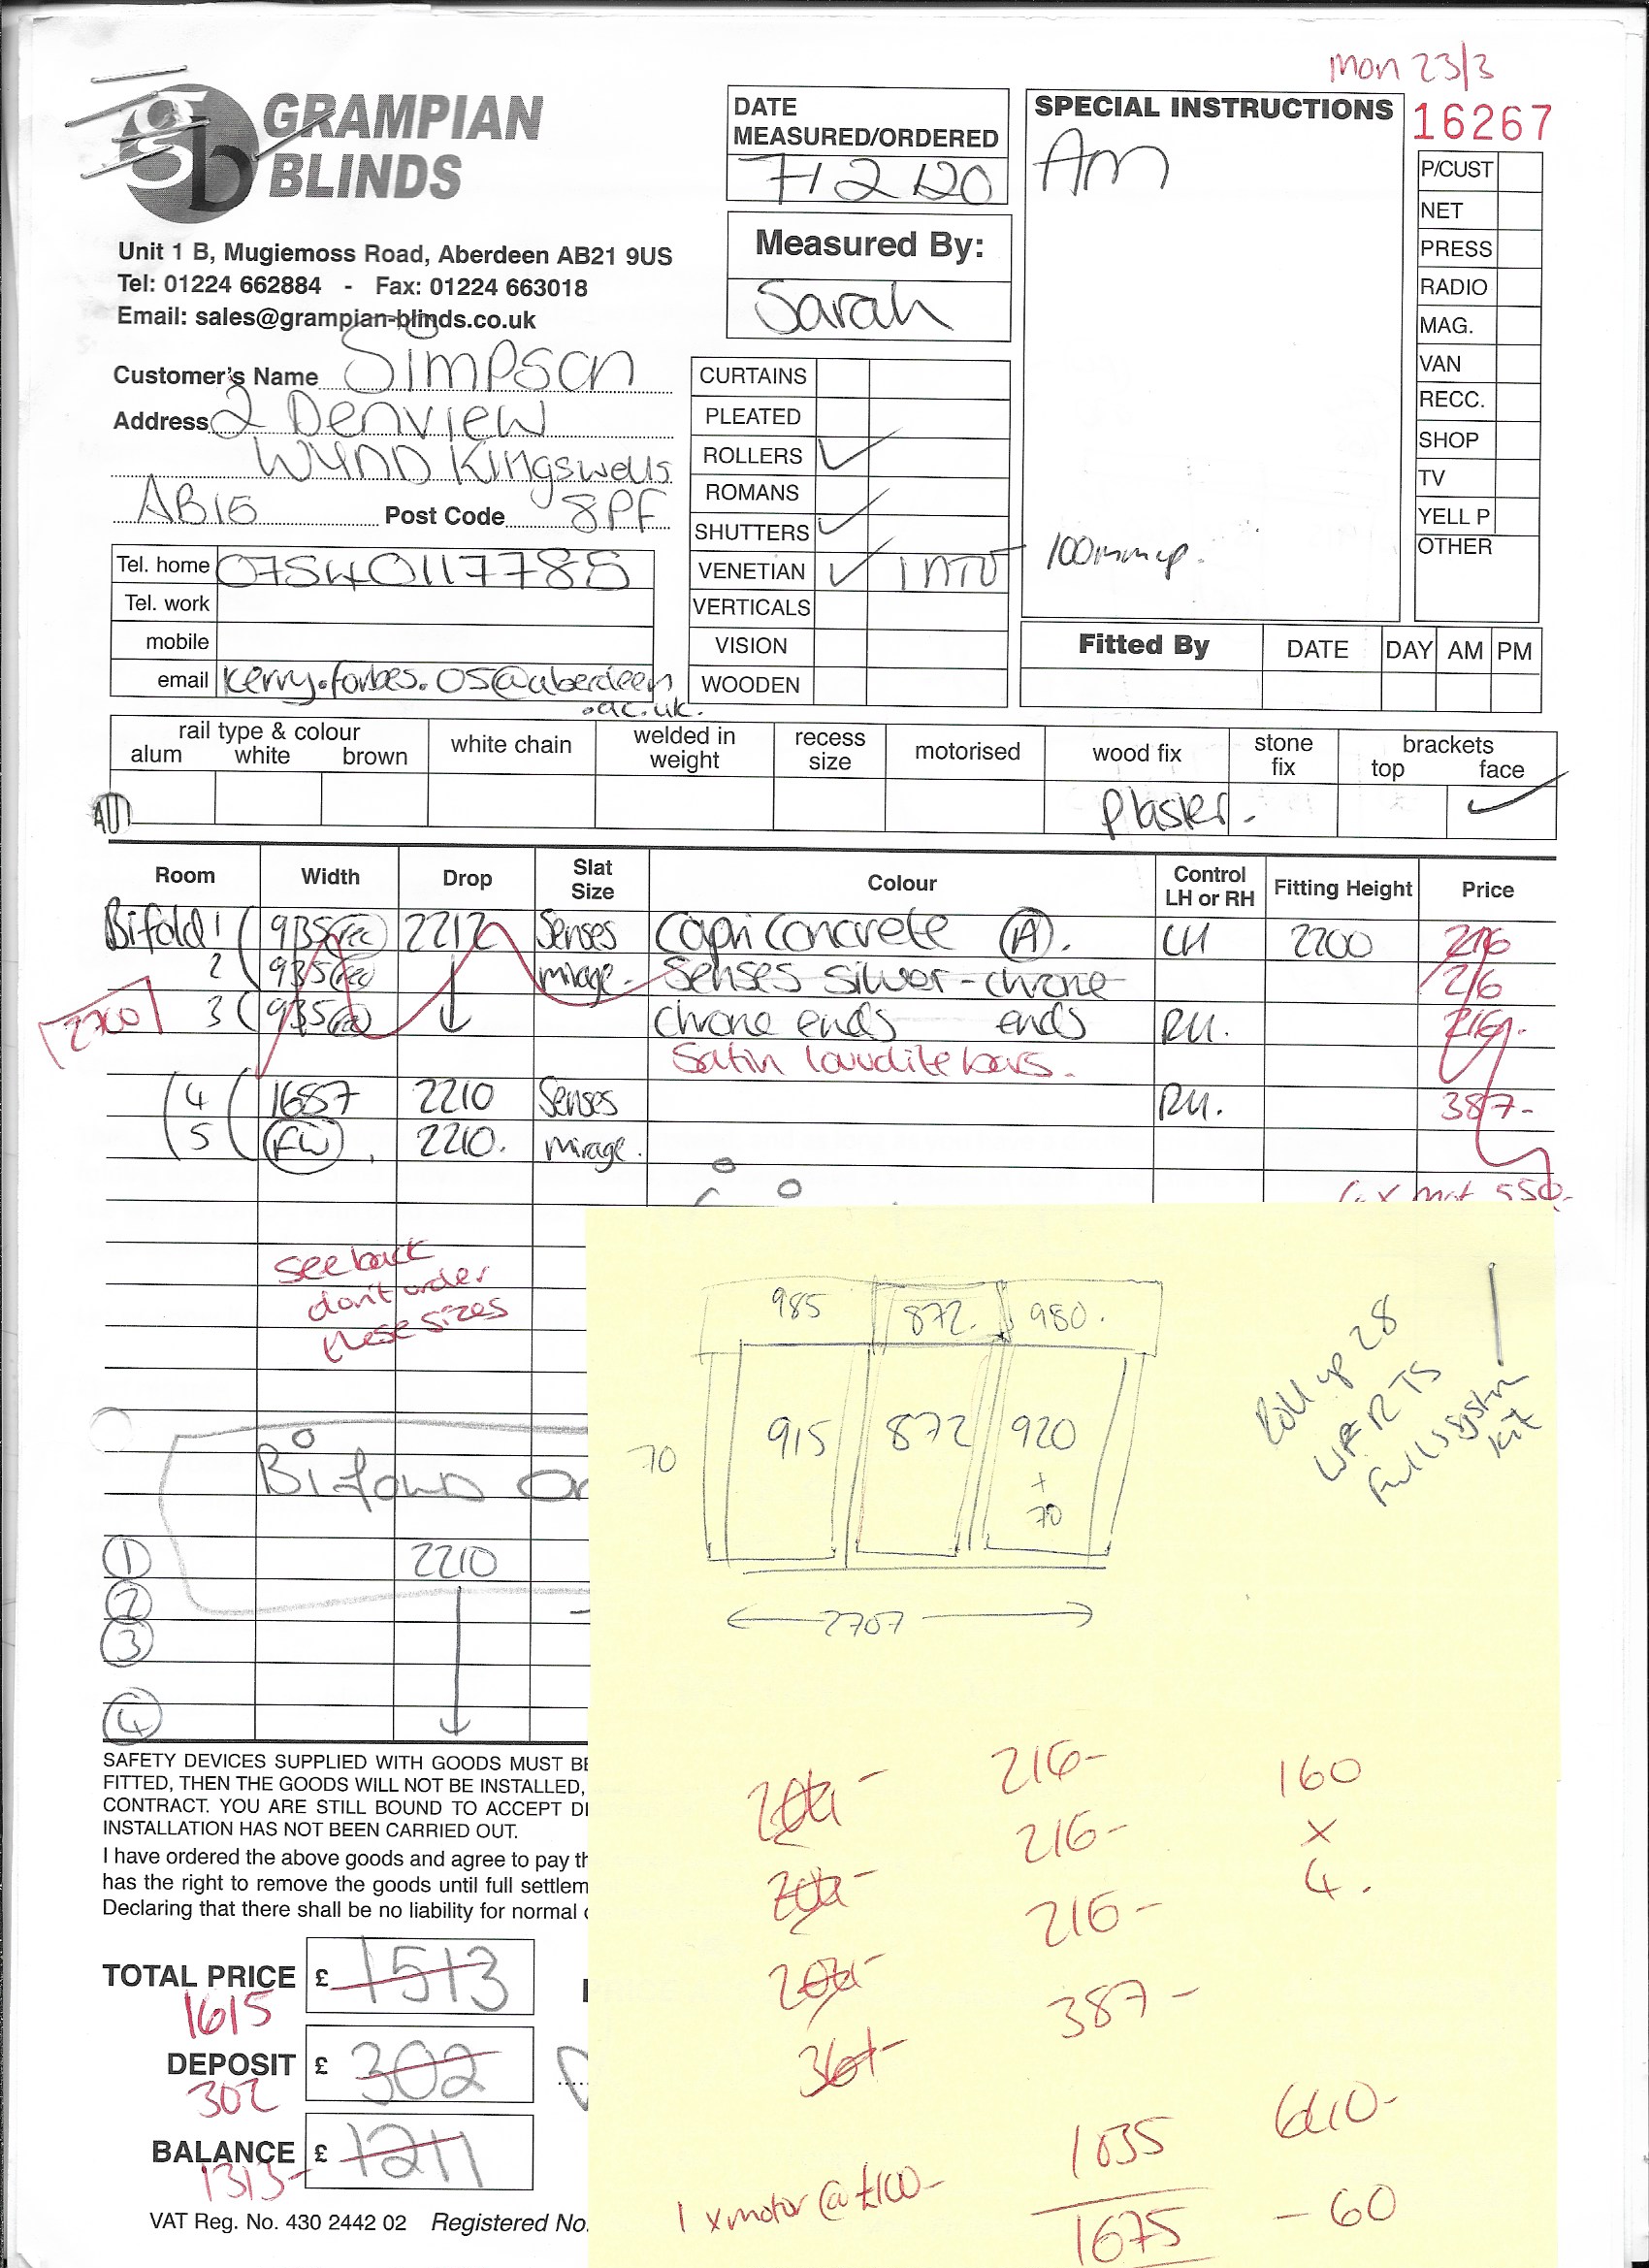 mon 23/3
GRAMPIAN
BLINDS
Unit 1 B, Mugiemoss Road, Aberdeen AB21 9US
Tel: 01224 662884 - Fax: 01224 663018
Email: sales@grampian-blinds.co.uk
DATE
MEASURED/ORDERED
7/2/20
Measured By:
Sarah
SPECIAL INSTRUCTIONS
Am
100mm up.
16267
P/CUST
NET
PRESS
RADIO
MAG.
VAN
RECC.
SHOP
TV
YELL P
OTHER
Customer's Name Simpson
Address 2 Denview
Wynd Kingswells
AB15 Post Code 8PF
Tel. home 07540117785
Tel. work
mobile
email kerry.forbes.05@aberdeen
.ac.uk.
CURTAINS
PLEATED
ROLLERS ✓
ROMANS
SHUTTERS ✓
VENETIAN ✓ INTU
VERTICALS
VISION
WOODEN
Fitted By DATE DAY AM PM
rail type & colour
alum white brown
white chain
welded in
weight
recess
size
motorised
wood fix
stone
fix
brackets
top face
All
Plaster. ✓
Room Width Drop Slat Size Colour Control LH or RH Fitting Height Price
Bifold 1 935(rec) 2212 Senses Capri Concrete (A). LH 2200 216
2 935(rec) mirage. Senses silver-chrome 216
2700 3 935(rec) chrome ends ends RH. 216.
Satin laudite bars.
4 1657 2210 Senses RH. 387-
5 (FW). 2210. mirage.
x mot 550.
see back
don't order
these sizes
Bifold
1 2210
2
3
4
985 872. 980.
70 915 872 920
+
70
2707
Roll up 28
WFRTS
Full system
kit
SAFETY DEVICES SUPPLIED WITH GOODS MUST BE
FITTED, THEN THE GOODS WILL NOT BE INSTALLED,
CONTRACT. YOU ARE STILL BOUND TO ACCEPT DI
INSTALLATION HAS NOT BEEN CARRIED OUT.
I have ordered the above goods and agree to pay th
has the right to remove the goods until full settlem
Declaring that there shall be no liability for normal
216- 160
216- x
216- 4.
387-
1035 640-
1 x motor @ £100- 1675 - 60
TOTAL PRICE £ 1513
1615
DEPOSIT £ 302
302
BALANCE £ 1211
1313-
VAT Reg. No. 430 2442 02 Registered No.